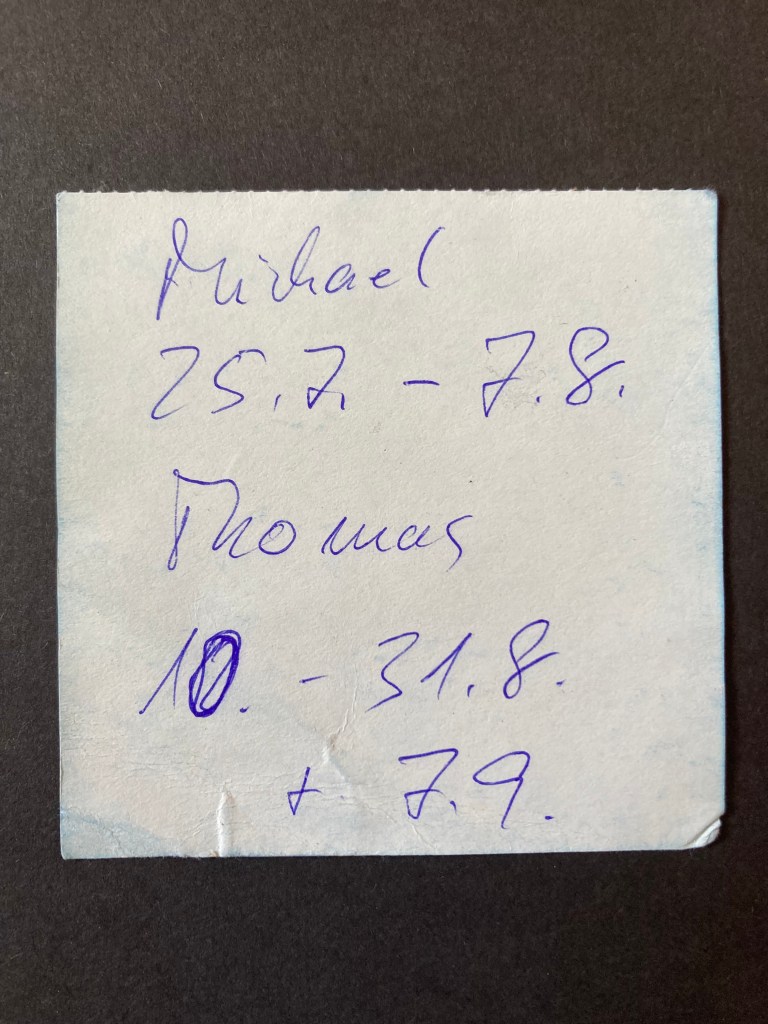 Michael
25.7. - 7.8.
Thomas
10. - 31.8.
+ 7.9.